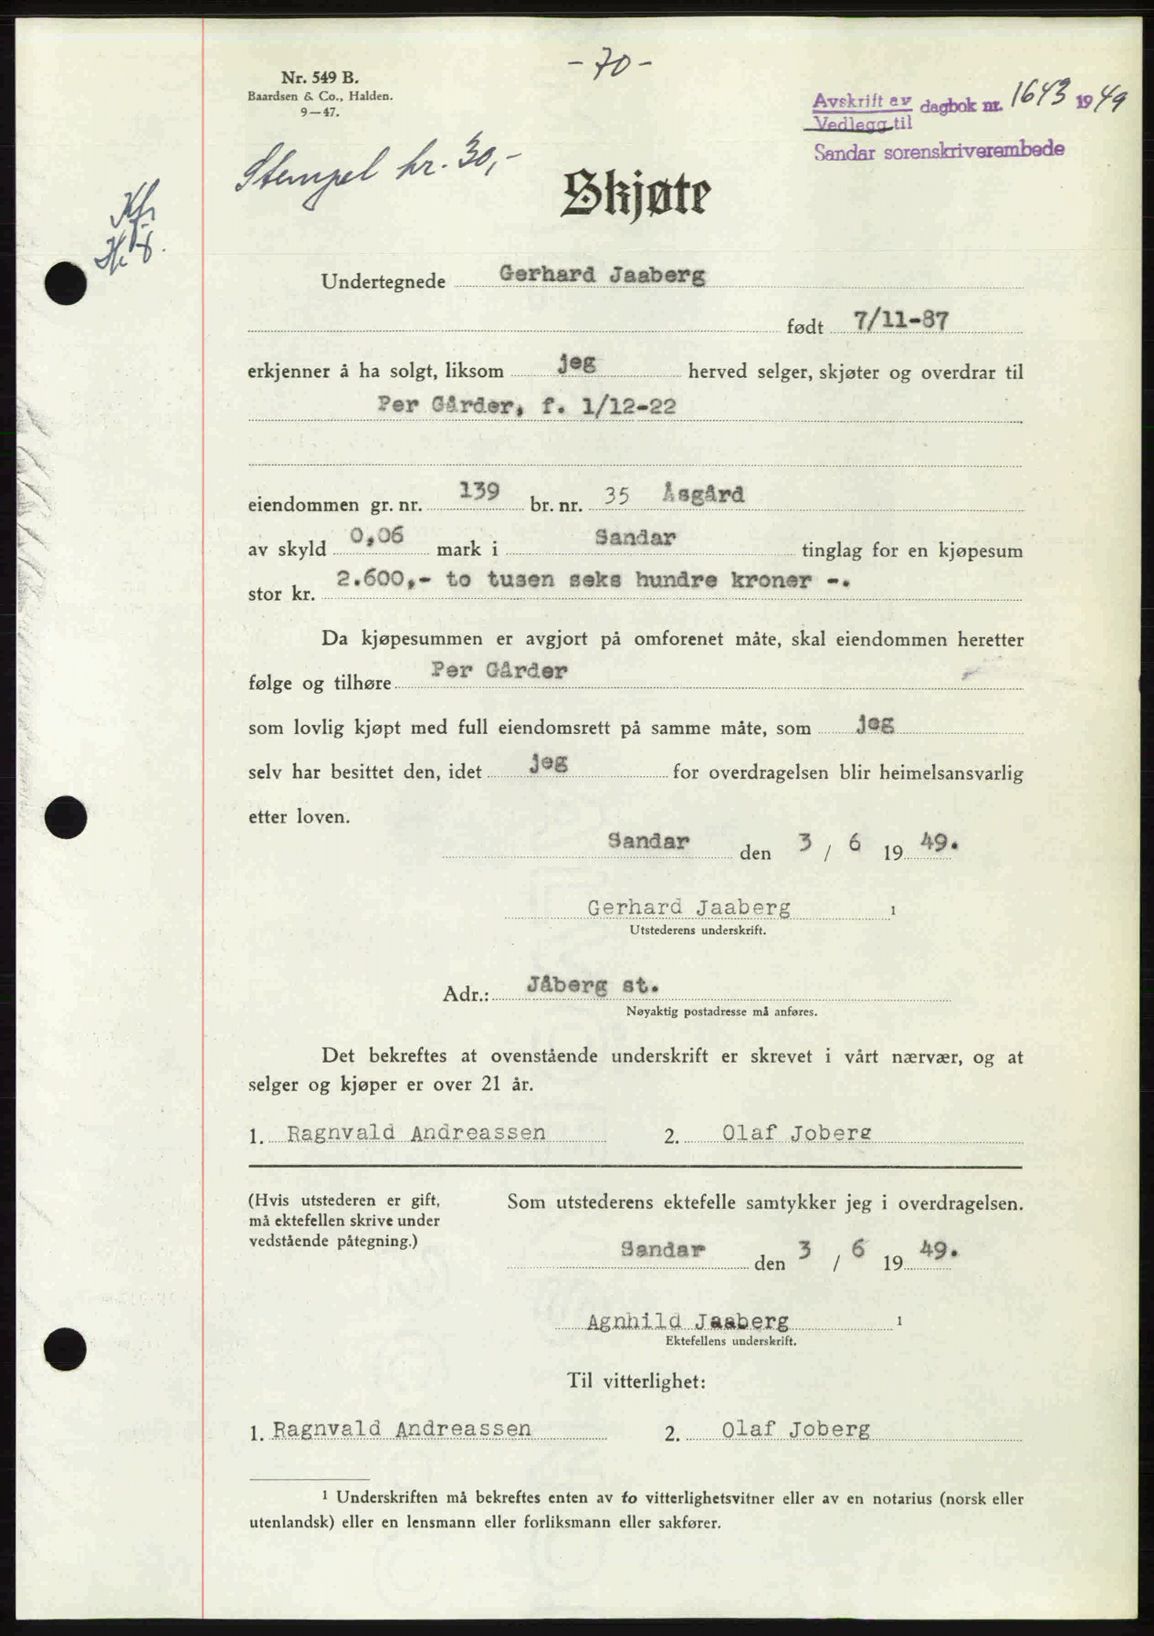 - 70 -
Nr. 549 B.
Baardsen & Co., Halden.
9—47.
Avskrift av
Vedlegg til
dagbok nr. 1643 1949
Sandar sorenskriverembede
Stempel kr. 30,-
Skjøte
Undertegnede Gerhard Jaaberg
født 7/11-87
erkjenner å ha solgt, liksom jeg herved selger, skjøter og overdrar til
Per Gårder, f. 1/12-22
eiendommen gr. nr. 139 br. nr. 35 Åsgård
av skyld 0,06 mark i Sandar tinglag for en kjøpesum
stor kr. 2.600,- to tusen seks hundre kroner -.
Da kjøpesummen er avgjort på omforenet måte, skal eiendommen heretter
følge og tilhøre Per Gårder
som lovlig kjøpt med full eiendomsrett på samme måte, som jeg
selv har besittet den, idet jeg for overdragelsen blir heimelsansvarlig
etter loven.
Sandar den 3 / 6 19 49.
Gerhard Jaaberg 1
Utstederens underskrift.
Adr.: Jåberg st.
Nøyaktig postadresse må anføres.
Det bekreftes at ovenstående underskrift er skrevet i vårt nærvær, og at
selger og kjøper er over 21 år.
1. Ragnvald Andreassen 2. Olaf Joberg
(Hvis utstederen er gift,
må ektefellen skrive under
vedstående påtegning.)
Som utstederens ektefelle samtykker jeg i overdragelsen.
Sandar den 3 / 6 19 49.
Agnhild Jaaberg 1
Ektefellens underskrift.
Til vitterlighet:
1. Ragnvald Andreassen 2. Olaf Joberg
1 Underskriften må bekreftes enten av to vitterlighetsvitner eller av en notarius (norsk eller
utenlandsk) eller en lensmann eller forliksmann eller sakfører.